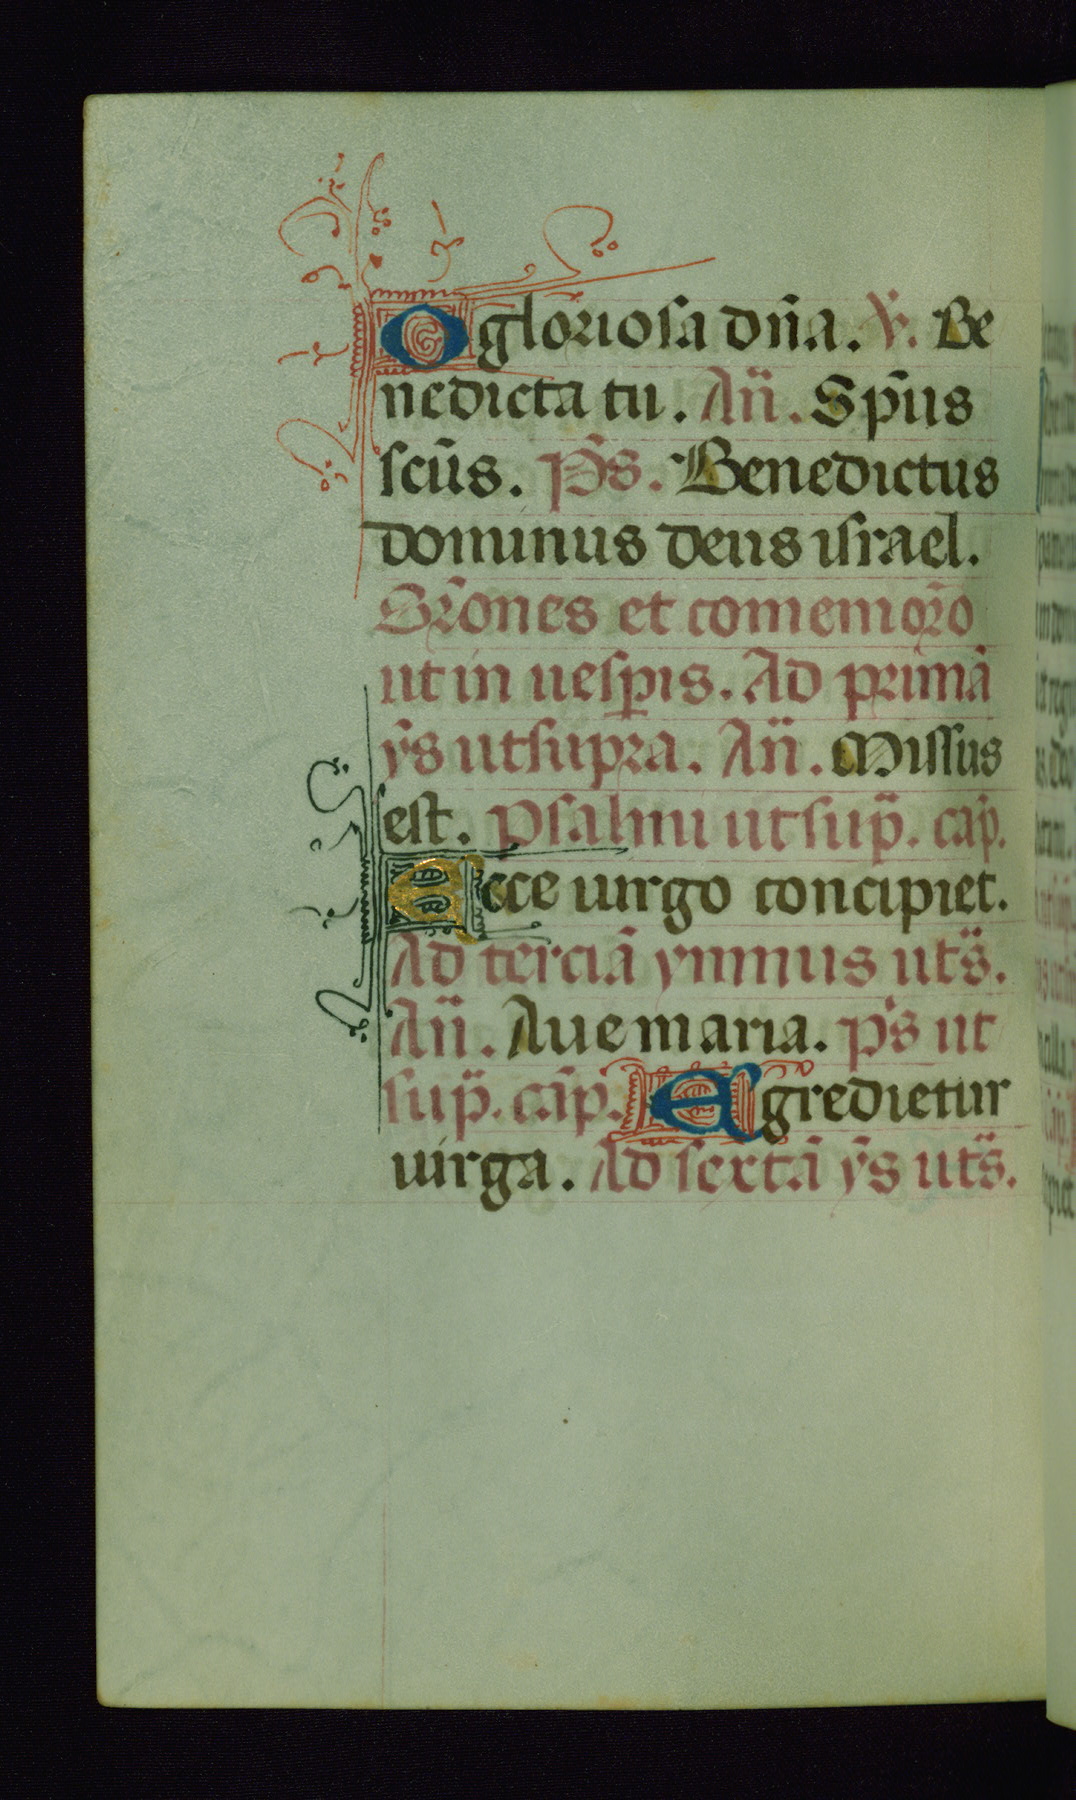 O gloriosa dña. ℣. Be
nedicta tu. Añ. Sp̃us
sc̃us. P̃s. Benedictus
dominus deus israel.
Or̃ones et comemor̃o
ut in uesp̃is. Ad primã
ỹs ut supra. Añ. Missus
est. Psalmi ut sup̃. cap̃.
Ecce uirgo concipiet.
Ad terciã ymnus ut s̃.
Añ. Aue maria. p̃s ut
sup̃. cãp. Egredietur
uirga. Ad sextã ỹs ut s̃.